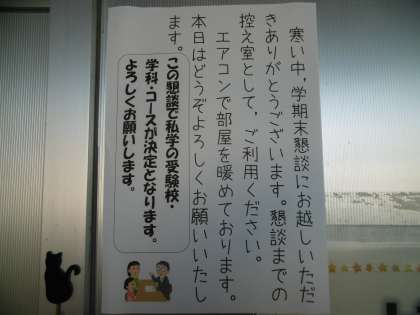 寒い中,学期末懇談にお越しいただ
きありがとうございます。懇談までの
控え室として,ご利用ください。
エアコンで部屋を暖めております。
本日はどうぞよろしくお願いいたし
ます。
この懇談で私学の受験校・
学科・コースが決定となります。
よろしくお願いします。